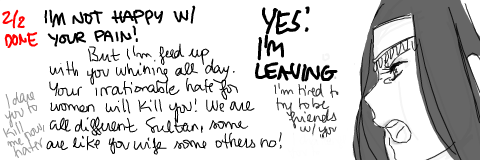 2/2
DONE
I'M NOT HAPPY W/
YOUR PAIN!
But I'm feed up
with you whining all day.
Your irrationable hate for
women will kill you! We are
all different Sultan, some
are like you wife some others no!
I dare
you to
kill
me now
hater
YES!
I'M
LEAVING
I'm tired to
try to be
friends
w/ you